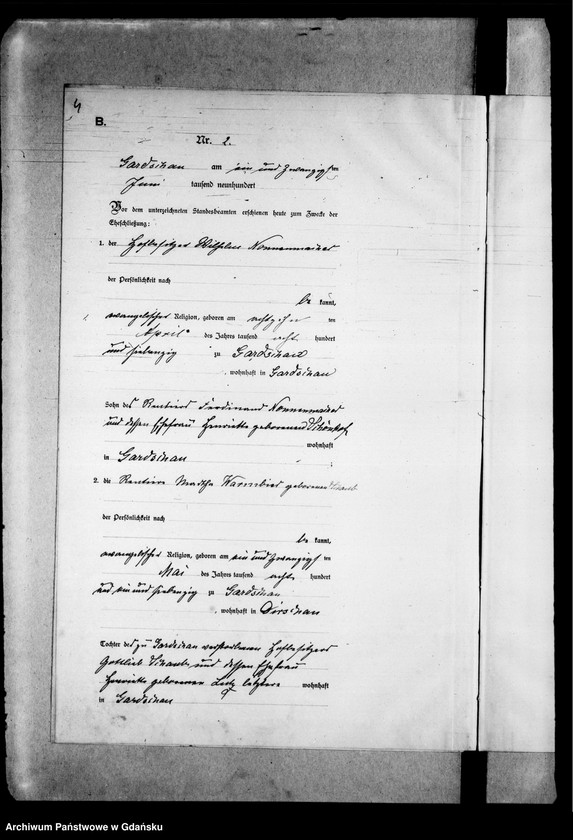 4
B.
Nr. 2.
Gardschau am ein und zwanzigsten
Juni tausend neunhundert
Vor dem unterzeichneten Standesbeamten erschienen heute zum Zwecke der
Eheschließung:
1. der Hofbesitzer Wilhelm Nonnenmacher
der Persönlichkeit nach
be kannt,
evangelischer Religion, geboren am achtzehn ten
April des Jahres tausend acht hundert
und siebenzig zu Gardschau
, wohnhaft in Gardschau
Sohn des Rentiers Ferdinand Nonnenmacher
und dessen Ehefrau Henriette geborenen
wohnhaft
in Gardschau
2. die Rentiere Martha Warmbier geborenen
der Persönlichkeit nach
be kannt,
evangelischer Religion, geboren am ein und zwanzigs ten
Mai des Jahres tausend acht hundert
und ein und siebenzig zu Gardschau
, wohnhaft in Dirschau
Tochter des zu Gardschau verstorbenen Hofbesitzers
Gottlieb und dessen Ehefrau
Henriette geborenen letztere wohnhaft
in Gardschau
Archiwum Państwowe w Gdańsku